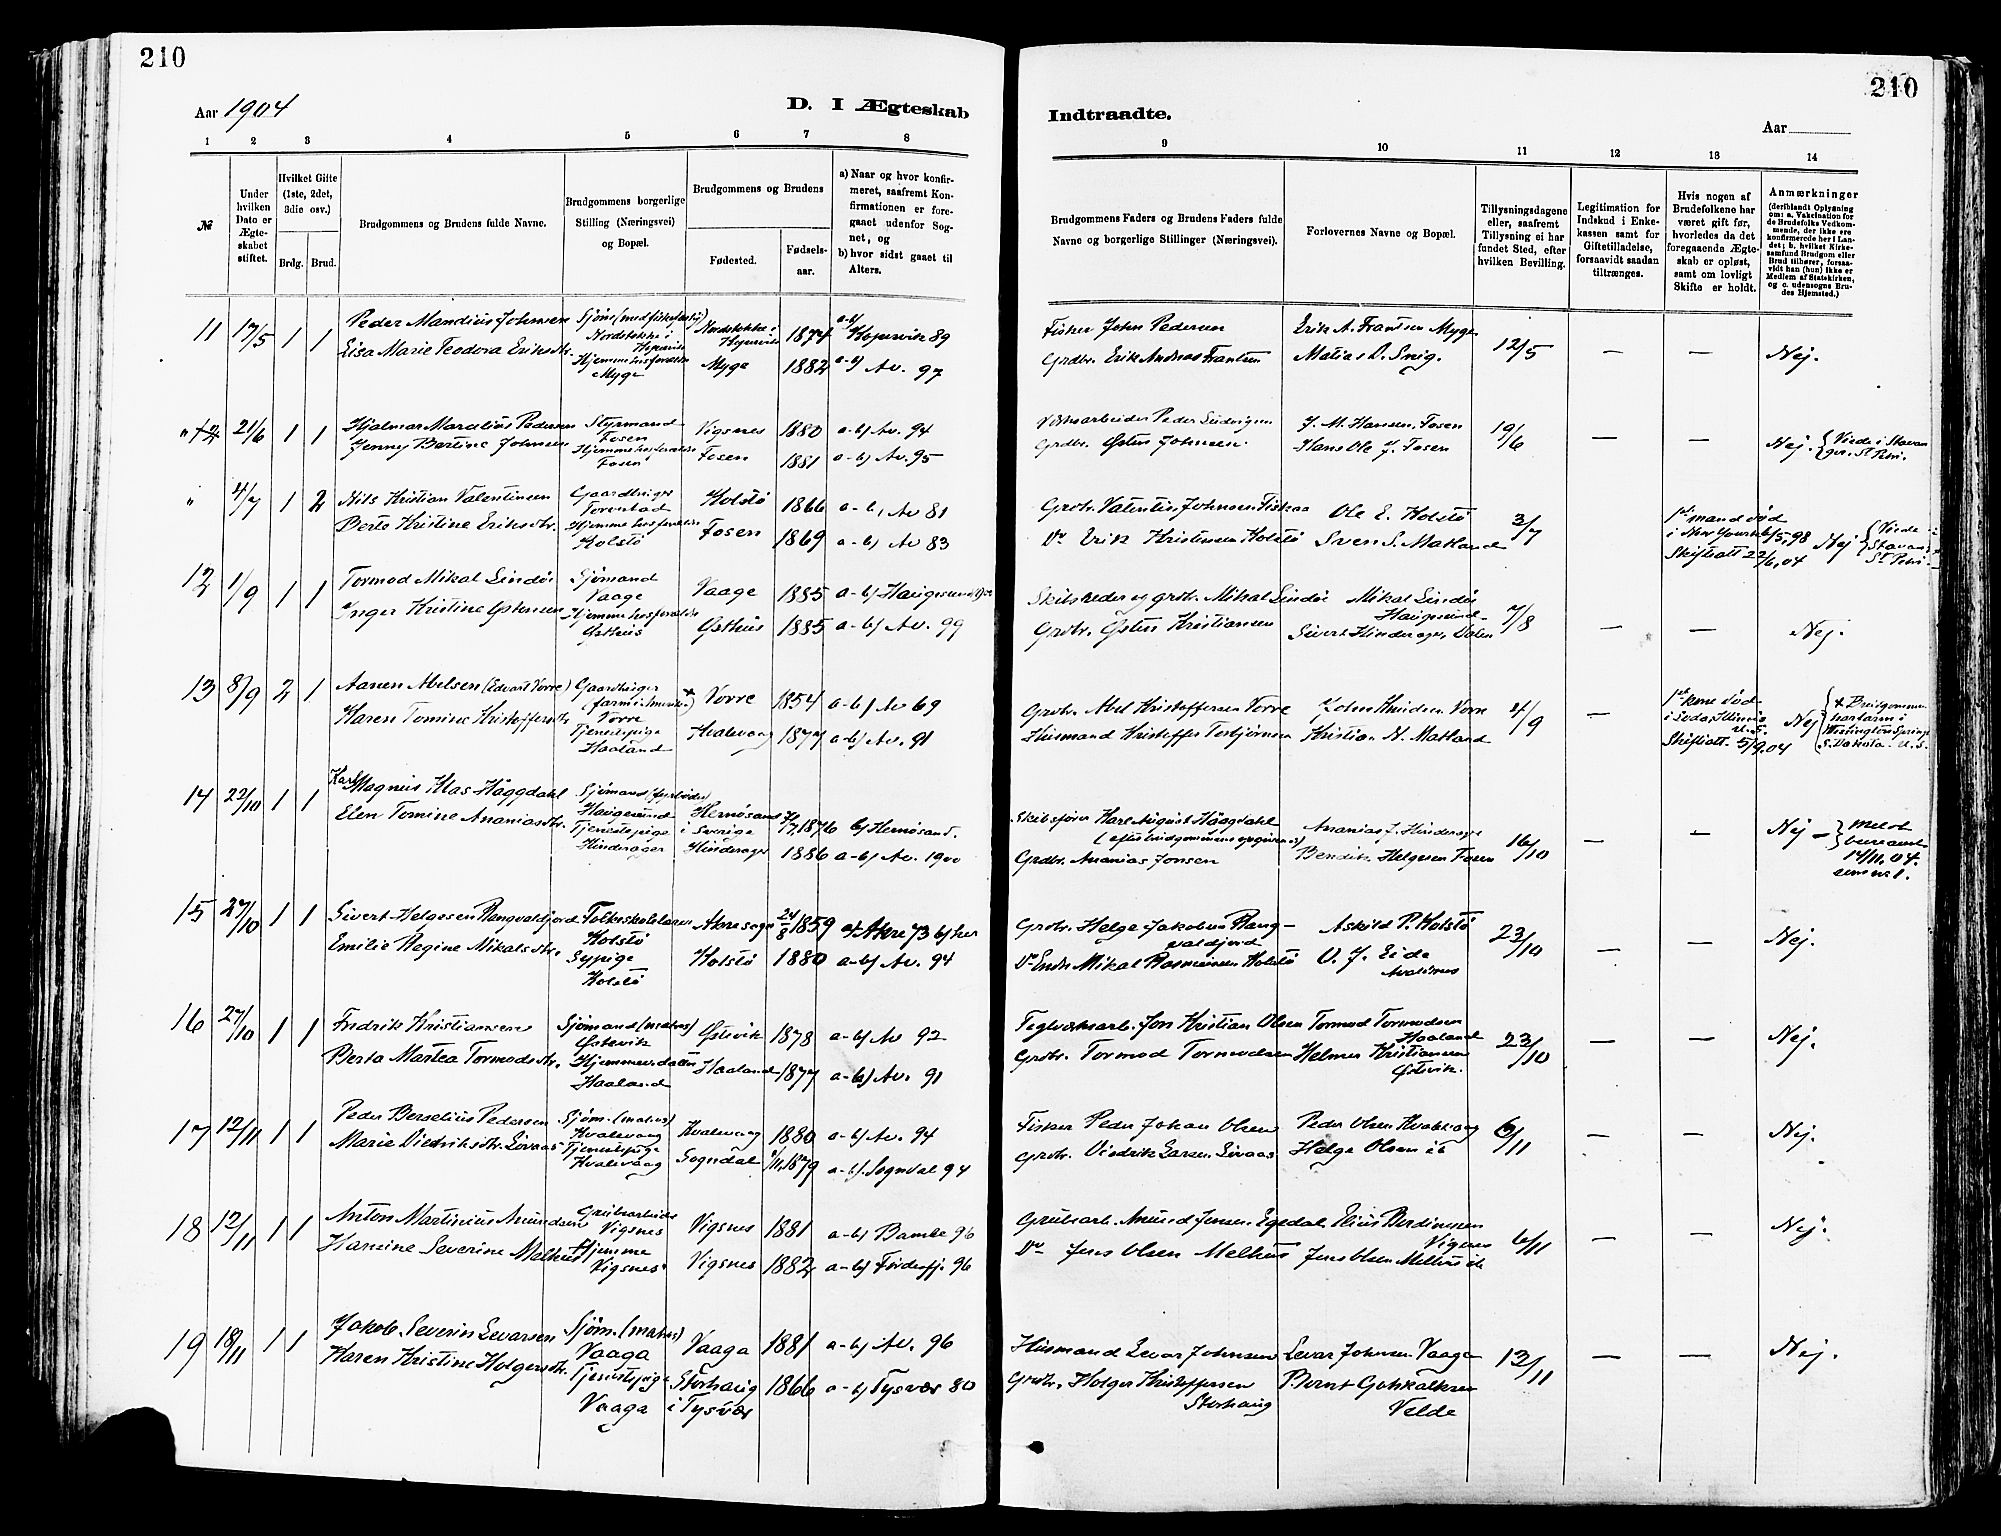 210
210
Aar 1904
D. I Ægteskab
Indtraadte.
Aar
1 2 3 4 5 6 7 8
9 10 11 12 13 14
№
Under hvilken Dato er Ægteskabet stiftet.
Hvilket Gifte (1ste, 2det, 3die osv.)
Brdg. Brud.
Brudgommens og Brudens fulde Navne.
Brudgommens borgerlige Stilling (Næringsvei) og Bopæl.
Brudgommens og Brudens
Fødested.
Fødselsaar.
a) Naar og hvor konfirmeret, saafremt Konfirmationen er foregaaet udenfor Sognet, og
b) hvor sidst gaaet til Alters.
Brudgommens Faders og Brudens Faders fulde Navne og borgerlige Stillinger (Næringsvei).
Forlovernes Navne og Bopæl.
Tillysningsdagene eller, saafremt Tillysning ei har fundet Sted, efter hvilken Bevilling.
Legitimation for Indskud i Enkekassen samt for Giftetilladelse, forsaavidt saadan tiltrænges.
Hvis nogen af Brudefolkene har været gift før, hvorledes da det foregaaende Ægteskab er opløst, samt om lovligt Skifte er holdt.
Anmærkninger
(deriblandt Oplysning om: a. Vakcination for de Brudefolks Vedkommende, der ikke ere konfirmerede her i Landet; b. hvilket Kirkesamfund Brudgom eller Brud tilhører, forsaavidt han (hun) ikke er Medlem af Statskirken, og c. udensogns Brudes Hjemsted.)
11 17/5 1 1 Peder Mandius Johnsen
1874 a-b)
Fisker John Pedersen Erik A. Frantsen Myge 12/5 — — Nej.
Elisa Marie Teodora Eriksdtr. Myge 1882 a-b) Av. 97
Grdbr. Erik Andreas Frantsen Matias D. Snig.
21/6 1 1 Hjalmar Marelius Pedersen Styrmand Fosen Vigsnes 1880 a-b) Av. 94
Peder Ludvigsen J. M. Hansen Fosen 19/6 — — Nej.
Jenny Bertine Johnsen Fosen Fosen 1881 a-b) Av. 95
Grdbr. Østen Johnsen. Hans Ole J. Fosen
" 4/7 1 2 Nils Kristian Valentinsen Gaardbruger Holstø 1866 a-b) Av 81
Grdbr. Valentin Johnsen Ole E. Holstø 3/7
1ste mand død
Skiftatt 22/6.04 Nej
Berte Kristine Eriksdtr. Holstø Fosen 1869 a-b) Av 83
Do Erik Kristensen Holstø Sven S. Matland
12 1/9 1 1 Tormod Mikal Lindøe Sjømand Vaage Vaage 1885 a-b) Haugesund
Skibsreder og grdbr. Mikal Lindøe Mikal Lindøe Haugesund 7/8 — — Nej.
Inger Kristine Østensen Østhus Østhus 1885 a-b) Av. 99
Grdbr. Østen Kristiansen Sivert Hinderager Dalen
13 8/9 2 1 Aanen Abelsen (Edvart Vorre) Gaardbruger Vorre + Vorre 1854 a-b) Av 69
Grdbr. Abel Kristoffersen Vorre John Knudsen Vorre 4/9 —
1ste kone død
Skiftatt. 5/9.04 Nej
+ Brudgommen har farm i Wessington Springs S. Dakota U.S.
Karen Tomine Kristoffersdtr. Tjenestepige Haaland Kvalevaag 1877 a-b) Av. 91
Husmand Kristoffer Torbjørnsen Kristian N. Matland
14 22/10 1 1 Karl Magnus Klas Häggdahl Sjømand (fyrbøder) Haugesund Hernøsand i Sverige 1876 b) Hernøsand.
Skibsfører Karl August Häggdahl (efter brudgommens opgivende) Ananias J. Hinderager 16/10 — — Nej —
14/11.04.
Elen Tomine Ananiasdtr. Tjenestepige Hinderager Hinderager 1886 a-b) Av. 1900
Grdbr. Ananias Jonsen Bendik Helgesen Fosen
15 27/10 1 1 Sivert Helgesen Rangvaldjord Folkeskolelærer Holstø Akre sogn 24/8 1859 a) Akre 73 b) her
Grdbr. Helge Jakobus Rangvaldjord Askild P. Holstø 23/10 — — Nej.
Emilie Regine Mikalsdtr. Sypige Holstø Holstø 1880 a-b) Av. 94
Do Endre Mikal Rasmussen Holstø O. J. Eide Avaldsnes
16 27/10 1 1 Fredrik Kristiansen Sjømand (matros) Østevik Østevik 1878 a-b) Av 92
Teglverksarb. Jon Kristian Olsen Tormod Tormodsen Haaland 23/10 — — Nej.
Berta Martea Tormodsdtr. Hjemmev. datter Haaland Haaland 1877 a-b) Av. 91
Grdbr. Tormod Tormodsen Helmer Kristiansen Østevik.
17 12/11 1 1 Peder Berselius Pedersen Sjøm. (matros) Kvalevaag Kvalevaag 1880 a-b) Av. 94
Fisker Peder Johan Olsen Peder Olsen Kvalevaag 6/11 — — Nej.
Marie Diedriksdtr. Lövaas Tjenestepige Kvalevaag Sogndal 1879 a-b) Sogndal 94
Grdbr. Diedrik Larsen Lövaas Helge Olsen ib
18 12/11 1 1 Anton Martinius Amundsen Grubearbeider Vigsnes Vigsnes 1881 a-b) Bamble 96
Grubearb. Amund Jensen Egedal Elius Berdinesen Vigsnes 6/11 — — Nej.
Hansine Severine Melhus Hjemme Vigsnes Vigsnes 1882 a-b) Førdesfj. 96
Do Jens Olsen Melhus Jens Olsen Melhus ib
19 18/11 1 1 Jakob Severin Levarsen Sjøm. (matros) Vaaga Vaaga 1881 a-b) Av. 96
Husmand Levar Johnsen Levar Johnsen Vaage 13/11 — — Nej.
Karen Kristine Holgersdtr. Tjenestepige Vaaga Storhaug i Tysvær 1866 a-b) Tysvær 80
Grdbr. Holger Kristoffersen Storhaug Bernt Gotskalksen Velde